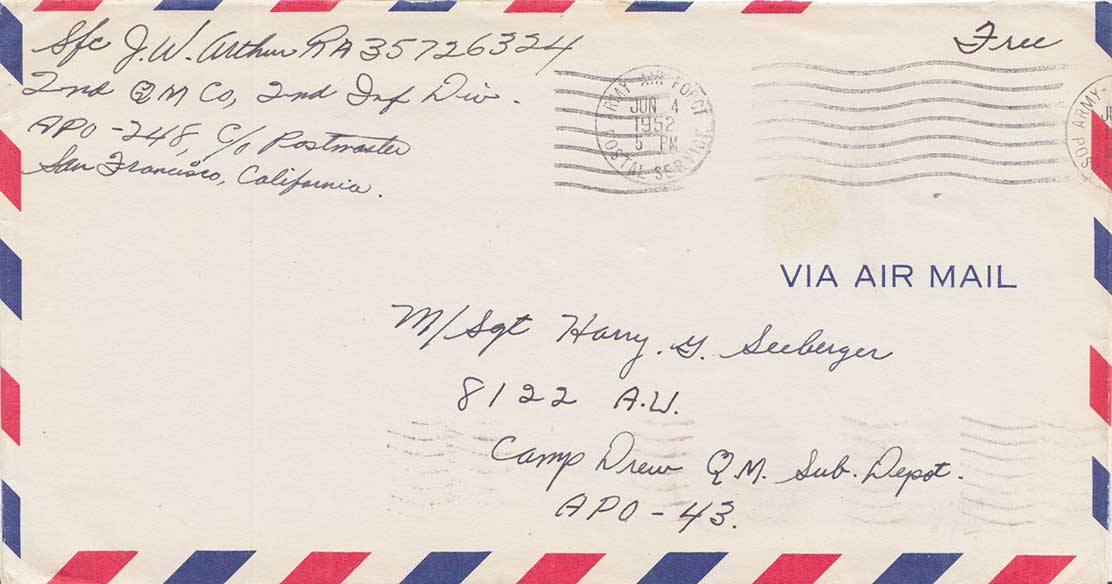 Sfc J. W. Arthur RA35726324
2nd QM Co, 2nd Inf Div.
APO-248, C/o Postmaster
San Francisco, California.
Free
ARMY-AIR FORCE
JUN 4
1952
5 PM
POSTAL SERVICE
ARMY-
POS
VIA AIR MAIL
M/Sgt Harry. G. Seeberger
8122 A.U.
Camp Drew Q.M. Sub. Depot.
APO-43.